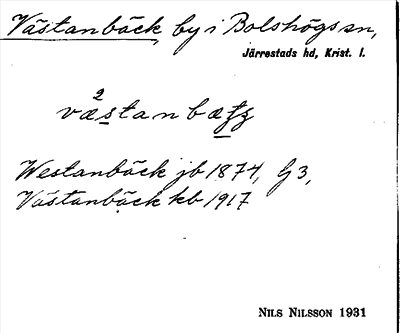 Västanbäck, by i Bolshögs sn,
Järrestads hd, Krist. l.
Westanbäck jb 1874, G 3,
Västanbäck kb 1917
NILS NILSSON 1931